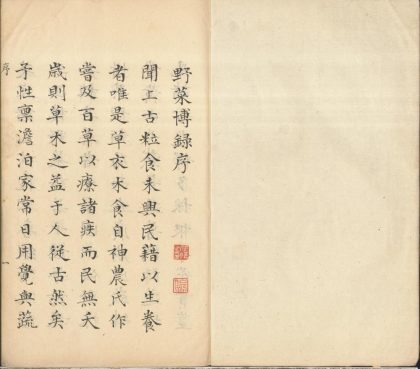 野菜博錄序
聞上古粒食未興民藉以生養
者唯是草衣木食自神農氏作
嘗及百草以療諸疾而民無夭
歲則草木之益于人從古然矣
予性稟澹泊家常日用覺與蔬
序
一